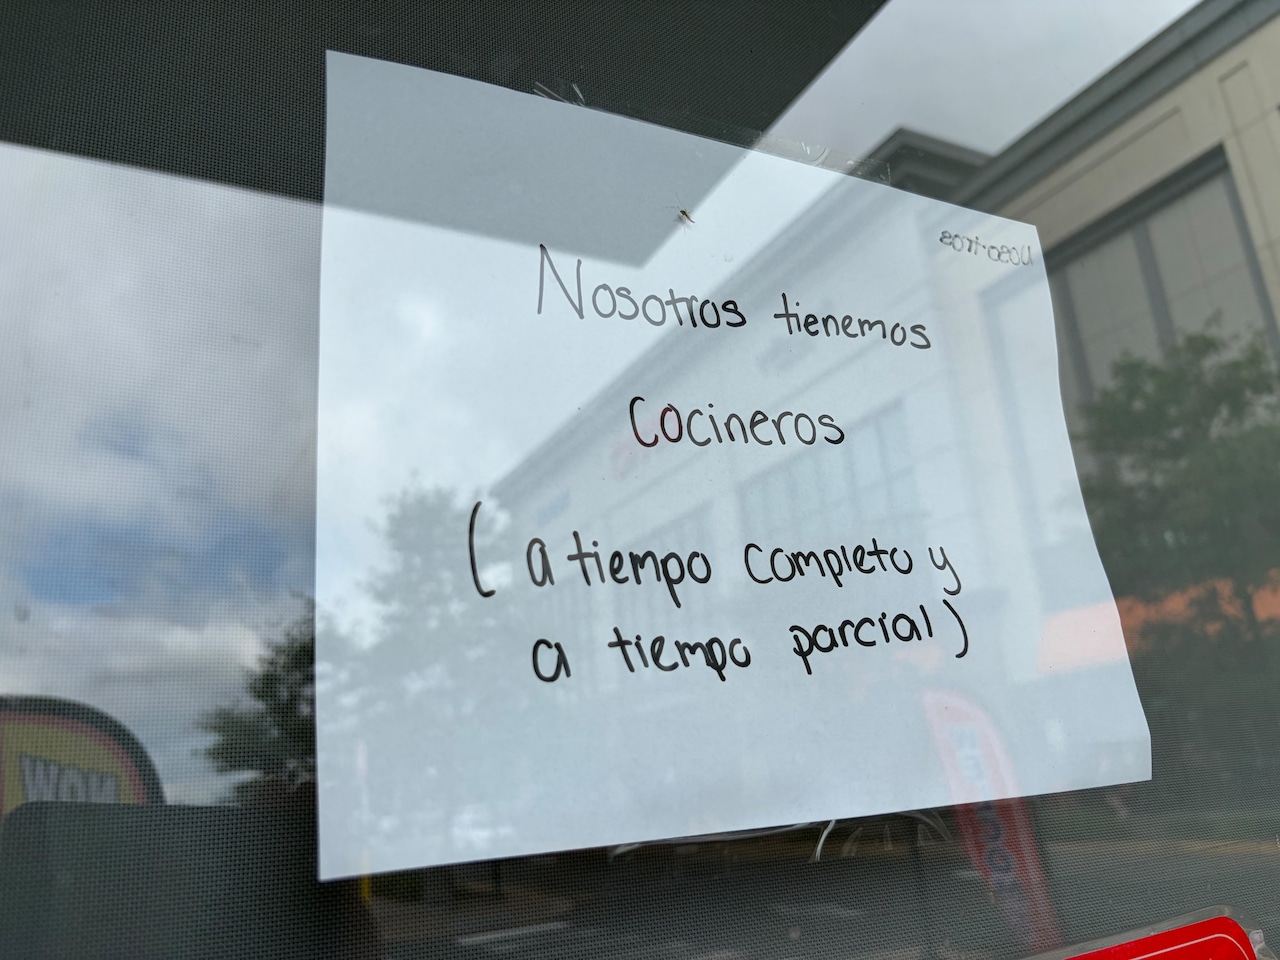 Nosotros tienemos
Cocineros
( a tiempo completo y
a tiempo parcial)
NOW